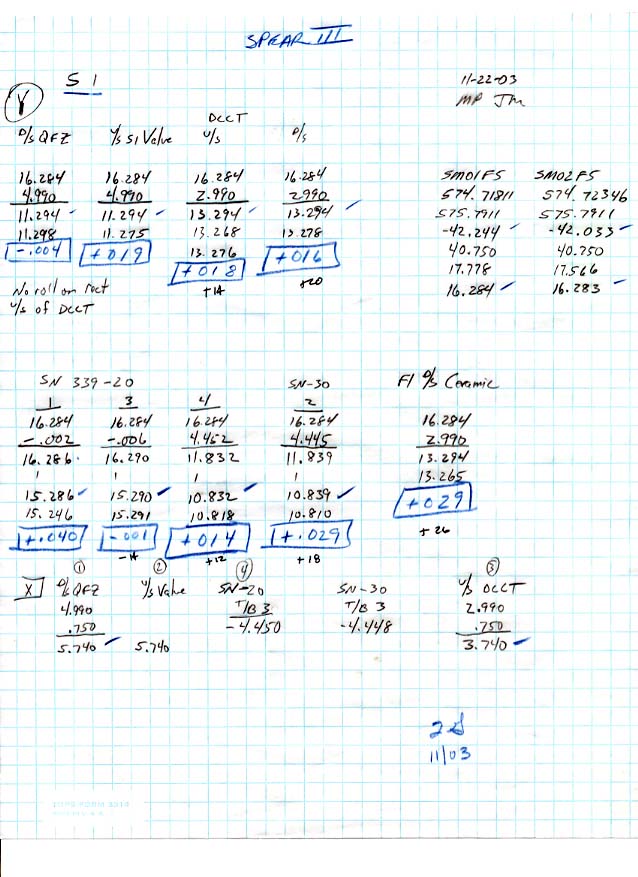 SPEAR III
S1
11-22-03
MP JM
Y
D/S QFZ U/S S1 Valve DCCT U/S D/S
16.284 16.284 16.284 16.284
4.990 4.990 2.990 2.990
11.294 11.294 13.294 13.294
11.298 11.275 13.268 13.278
-.004 +019 13.276 +016
+018 +20
+14
No roll on rect
U/S of DCCT
SM01F5 SM02F5
574.71811 574.72346
575.7911 575.7911
-42.244 -42.033
40.750 40.750
17.778 17.566
16.284 16.283
SN 339-20 SN-30 F1 D/S Ceramic
1 3 4 2
16.284 16.284 16.284 16.284 16.284
-.002 -.006 4.452 4.445 2.990
16.286 16.290 11.832 11.839 13.294
1 1 1 1 13.265
15.286 15.290 10.832 10.839 +029
15.246 15.291 10.818 10.810 +26
+.040 -001 +014 +.029
-14 +12 +18
X
1 2 4 3
D/S QFZ U/S Valve SN-20 SN-30 U/S DCCT
4.990 T/B 3 T/B 3 2.990
.750 -4.450 -4.448 .750
5.740 5.740 3.740
11/03